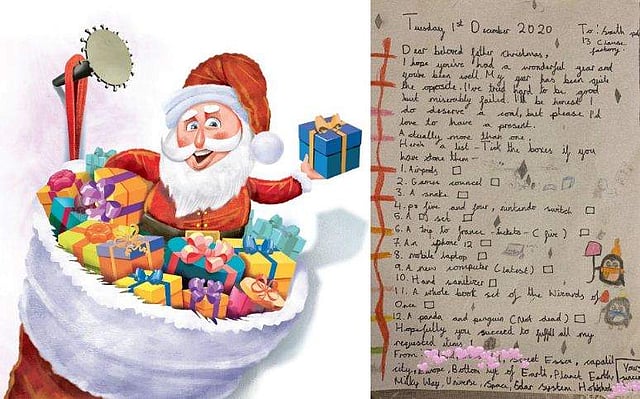 Tuesday 1st December 2020
To: South
13 Clause
factory.
Dear beloved father christmas,
I hope you've had a wonderful year and
you've been well. My year has been quite
the opposite, I've tried hard to be good
but miserably failed. I'll be honest I
do deserve a coal, but please I'd
love to have a present.
Actually more than one.
Here's a list - Tick the boxes if you
have done them -
1. Airpods
2. Games
3. A snake
4. ps five and four, nintendo switch
5. A DJ set
6. A trip to france - tickets - (five)
7. An iphone 12
8. mobile laptop
9. A new computer (latest)
10. Hand sanitizer
11. A whole book set of the Wizards of
Once
12. A panda and penguin (Not dead)
Hopefully you succeed to fulfill all my
requested items.
From Street Essex, capatil
city, Europe, Bottom of Earth, Planet Earth,
Milky Way, Universe, Space, Solar System,